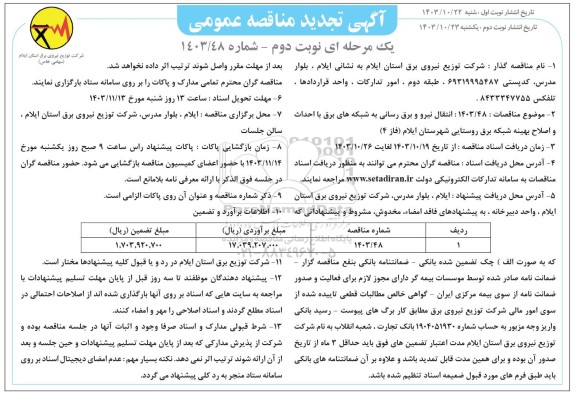 تاریخ انتشار نوبت اول : شنبه ۱۴۰۳/۱۰/۲۲
تاریخ انتشار نوبت دوم : یکشنبه ۱۴۰۳/۱۰/۲۳
آگهی تجدید مناقصه عمومی
یک مرحله ای نوبت دوم – شماره ۱۴۰۳/۴۸
شرکت توزیع نیروی برق استان ایلام
(سهامی خاص)
۱- نام مناقصه گذار : شرکت توزیع نیروی برق استان ایلام به نشانی ایلام ، بلوار
مدرس، کدپستی ۶۹۳۱۹۹۹۵۴۸۷ ، طبقه دوم ، امور تدارکات ، واحد قراردادها ،
تلفکس ۸۴۳۳۳۴۷۷۵۵
۲- موضوع مناقصات : ۱۴۰۳/۴۸ : انتقال نیرو و برق رسانی به شبکه های برق با احداث
و اصلاح بهینه شبکه برق روستایی شهرستان ایلام (فاز ۴)
۳- زمان دریافت اسناد مناقصه : از تاریخ ۱۴۰۳/۱۰/۱۹ لغایت ۱۴۰۳/۱۰/۲۶
۴- آدرس محل دریافت اسناد : مناقصه گران محترم می توانند به منظور دریافت اسناد
مناقصات به سامانه تدارکات الکترونیکی دولت www.setadiran.ir مراجعه نمایند.
۵- آدرس محل دریافت پیشنهاد : ایلام ، بلوار مدرس، شرکت توزیع نیروی برق استان
ایلام ، واحد دبیرخانه ، به پیشنهادهای فاقد امضاء، مخدوش، مشروط و پیشنهاداتی که
بعد از مهلت مقرر واصل شوند ترتیب اثر داده نخواهد شد.
مناقصه گران محترم تمامی مدارک و پاکات را بر روی سامانه ستاد بارگزاری نمایند.
۶- مهلت تحویل اسناد : ساعت ۱۳ روز شنبه مورخ ۱۴۰۳/۱۱/۱۳
۷- محل برگزاری مناقصه : ایلام ، بلوار مدرس، شرکت توزیع نیروی برق استان ایلام ،
سالن جلسات
۸- زمان بازگشایی پاکات : پاکات پیشنهاد راس ساعت ۹ صبح روز یکشنبه مورخ
۱۴۰۳/۱۱/۱۴ با حضور اعضای کمیسیون مناقصه بازگشایی می شود. حضور مناقصه گران
در جلسه فوق الذکر با ارائه معرفی نامه بلامانع است.
۹- ذکر شماره مناقصه و عنوان آن روی پاکات الزامی است.
۱۰- اطلاعات برآورد و تضمین
ردیف شماره مناقصه مبلغ برآوردی (ریال) مبلغ تضمین (ریال)
۱ ۱۴۰۳/۴۸ ۱۷,۰۳۹,۲۰۷,۰۰۰ ۱,۷۰۳,۹۲۰,۷۰۰
که به صورت الف ) چک تضمین شده بانکی - ضمانتنامه بانکی بنفع مناقصه گزار -
ضمانت نامه صادر شده توسط موسسات بیمه گر دارای مجوز لازم برای فعالیت و صدور
ضمانت نامه از سوی بیمه مرکزی ایران - گواهی خالص مطالبات قطعی تاییده شده از
سوی امور مالی شرکت توزیع نیروی برق مطابق کار برگ های پیوست - رسید بانکی
واریز وجه مزبور به حساب شماره ۱۹۰۴۰۵۱۹۳۰ بانک تجارت ، شعبه انقلاب به نام شرکت
توزیع نیروی برق استان ایلام مدت اعتبار تضمین های فوق باید حداقل ۳ ماه از تاریخ
صدور آن بوده و برای همین مدت قابل تمدید باشد و علاوه بر آن ضمانتنامه های بانکی
باید طبق فرم های مورد قبول ضمیمه اسناد تنظیم شده باشد.
۱۱- شرکت توزیع نیروی برق استان ایلام در رد و یا قبول کلیه پیشنهادها مختار است.
۱۲- پیشنهاد دهندگان موظفند تا سه روز قبل از پایان مهلت تسلیم پیشنهادات با
مراجعه به سایت هایی که اسناد بر روی آنها بارگذاری شده اند از اصلاحات احتمالی در
اسناد مطلع گردند و اسناد اصلاحی را مهر و امضاء کنند.
۱۳- شرط قبولی مدارک و اسناد صرفا وجود و اثبات آنها در جلسه مناقصه بوده و
شرکت از پذیرش مدارکی که بعد از پایان مهلت تسلیم پیشنهادات و حین جلسه و بعد
از آن ارائه شوند ترتیب اثر نمی دهد. نکته بسیار مهم : عدم امضای دیجیتال اسناد بر روی
سامانه ستاد منجر به رد کلی پیشنهاد می گردد.